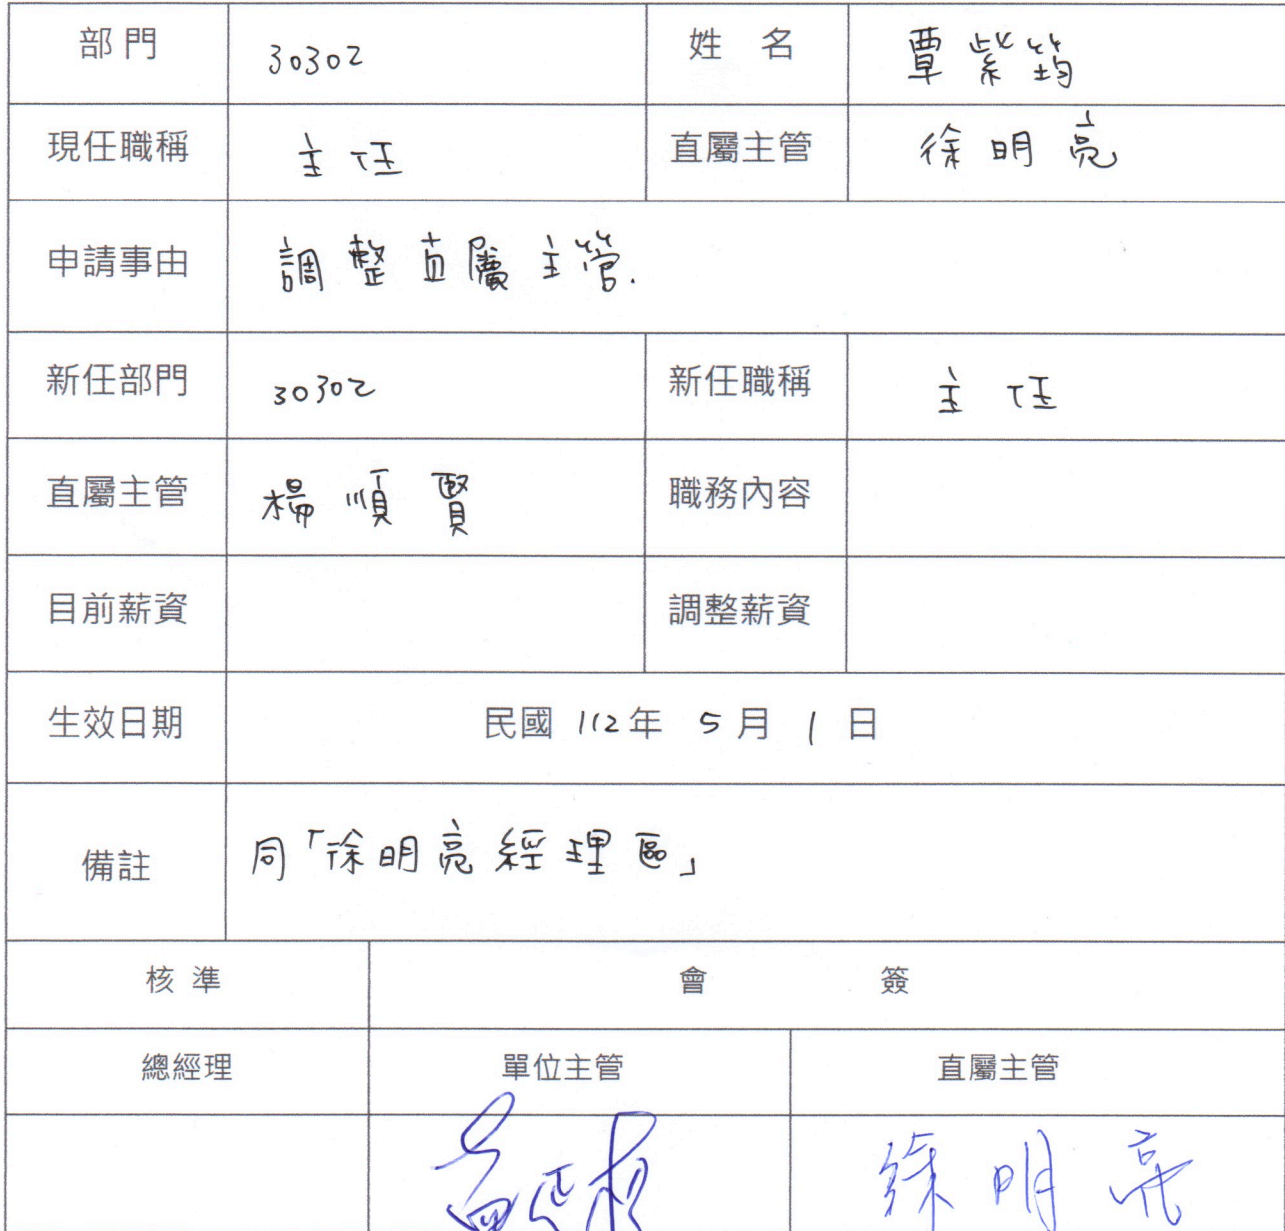 部門 30302 姓 名 覃紫筠
現任職稱 主任 直屬主管 徐明亮
申請事由 調整直屬主管.
新任部門 30302 新任職稱 主任
直屬主管 楊順賢 職務內容
目前薪資 調整薪資
生效日期 民國 112年 5月 1日
備註 同「徐明亮經理區」
核準 會 簽
總經理 單位主管 直屬主管
徐明亮